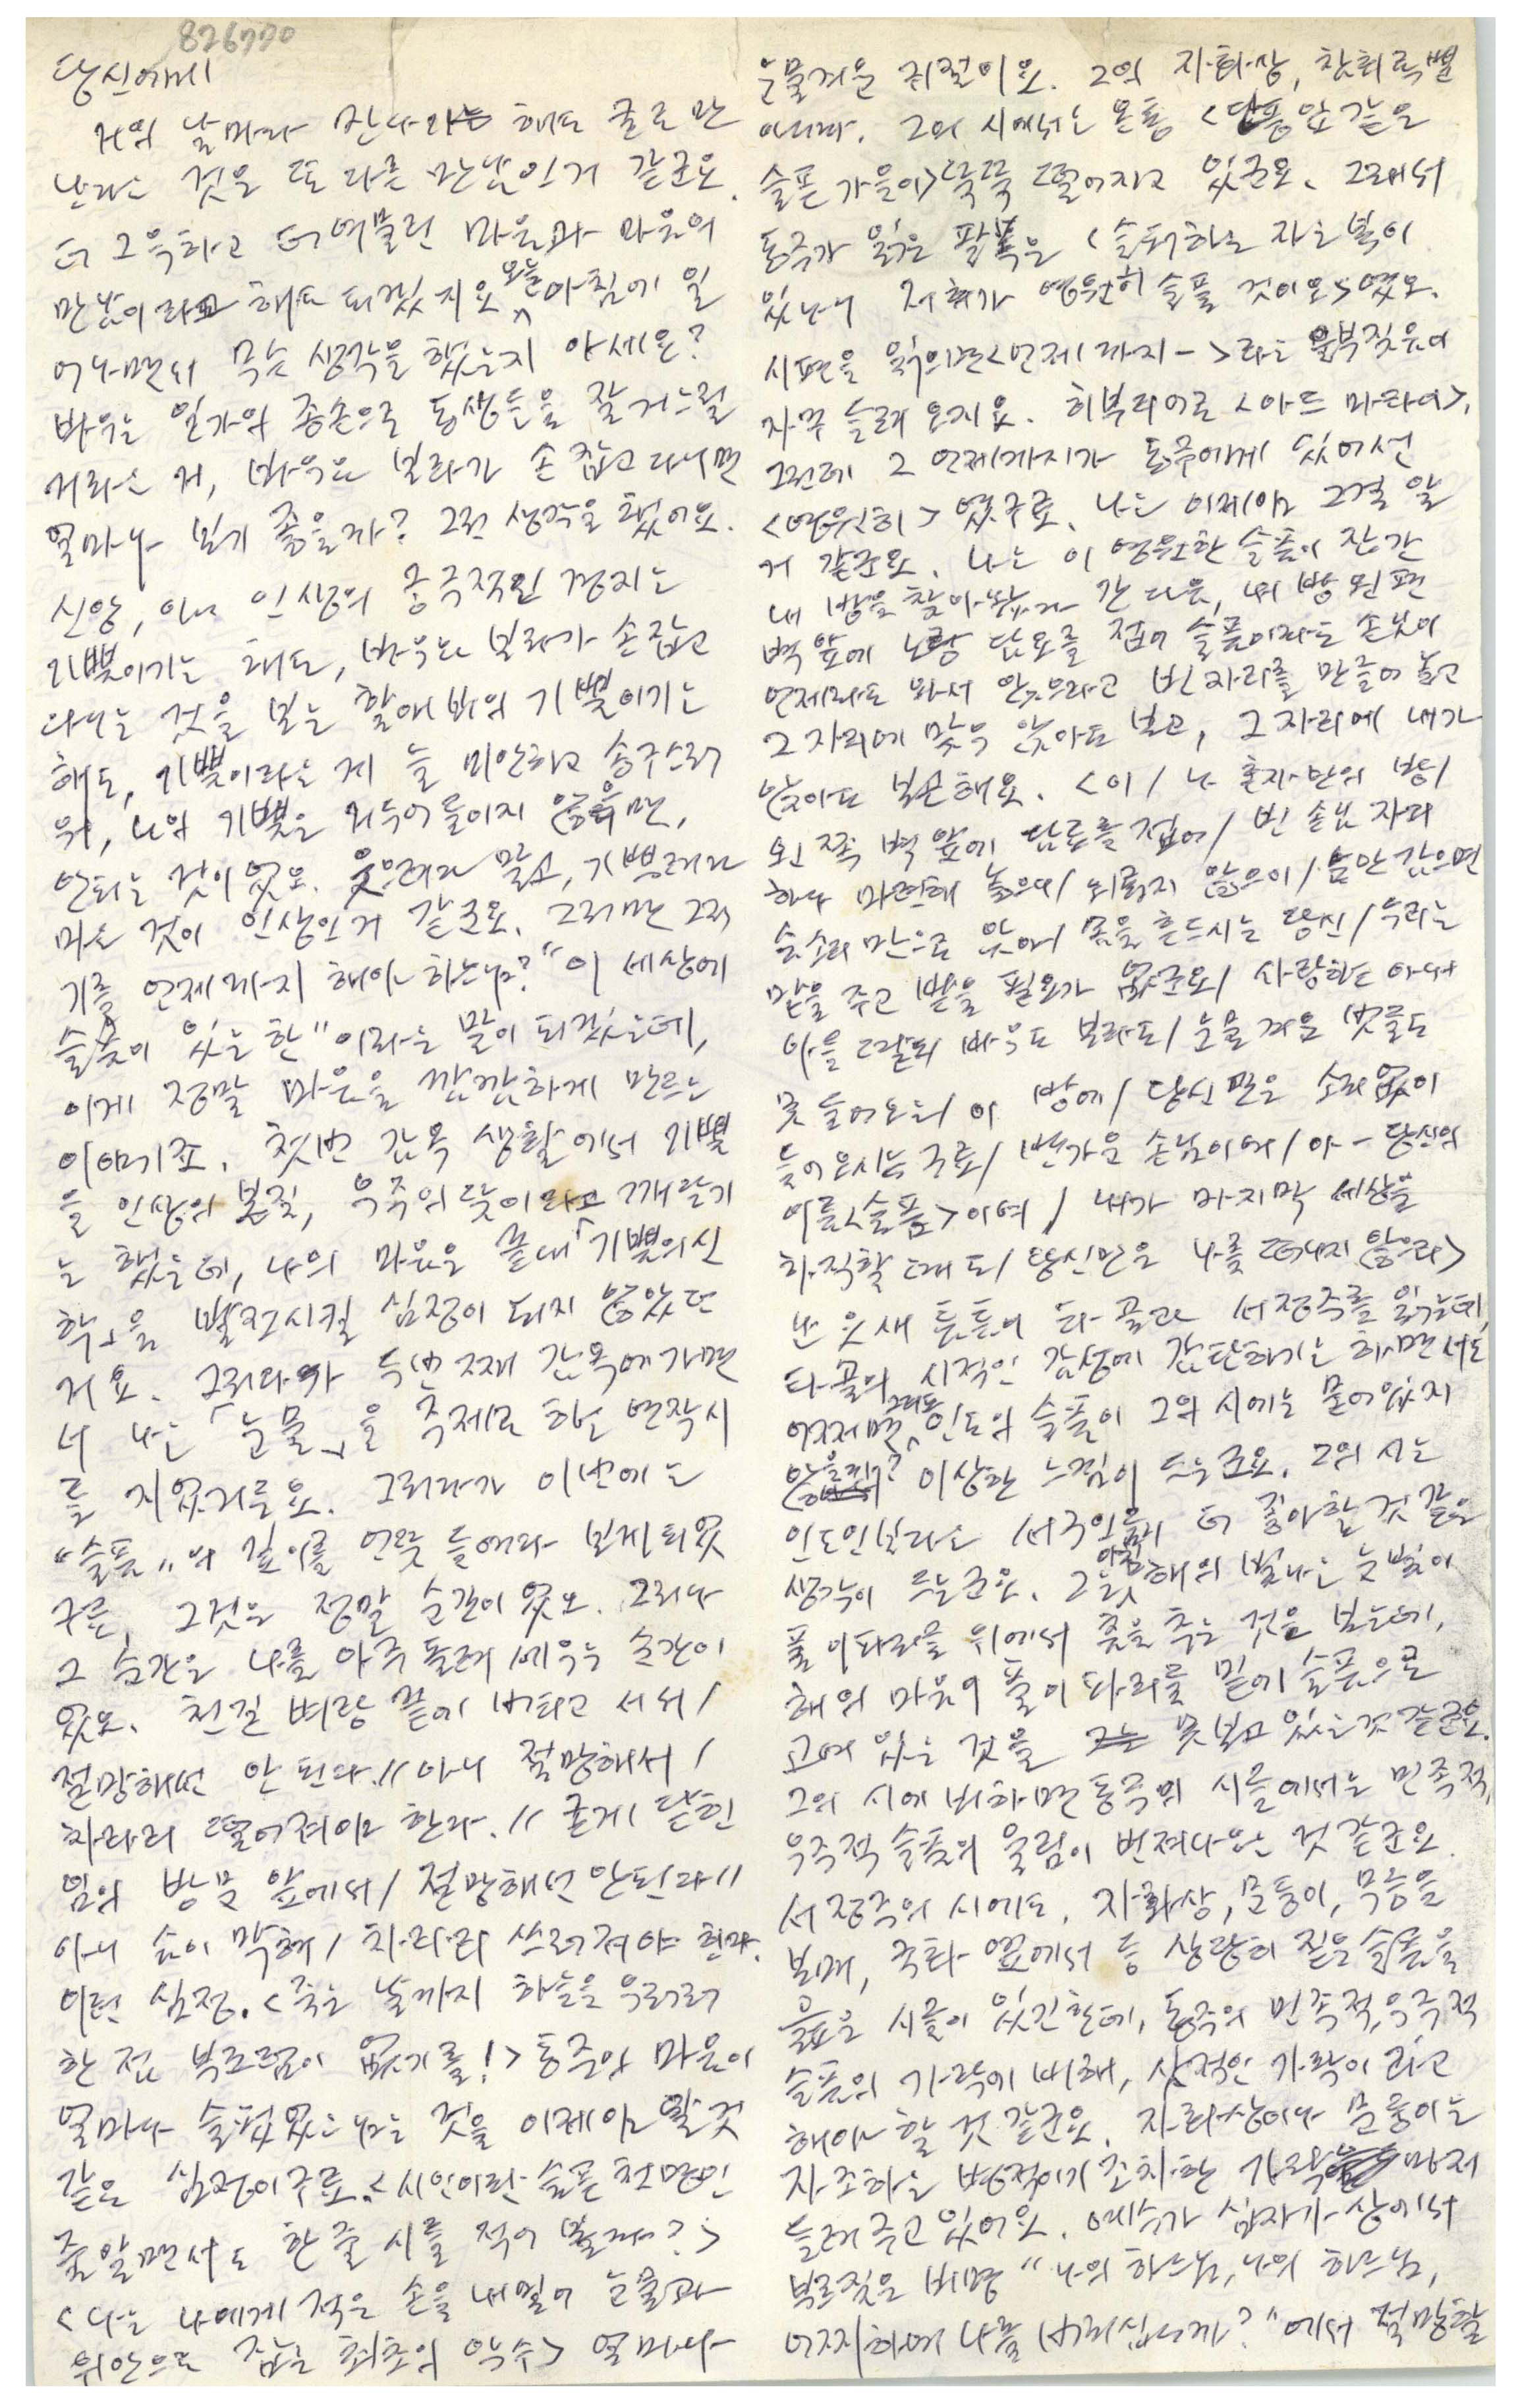 826770
당신에게
거의 날마다 만나기는 해도 글로 만
난다는 것은 또 다른 만남인거 같군요.
더 그윽하고 더 여물린 마음과 마음의
만남이라고 해도 되겠지요. 오늘 아침에 일
어나면서 무슨 생각을 했는지 아세요?
바우는 일가의 종손으로 동생들을 잘 거느릴
거라는 거, 바우와 보라가 손 잡고 다니면
얼마나 보기 좋을까? 그런 생각을 했어요.
신앙, 아니 인생의 궁극적인 경지는
기쁨이기는 해도, 바우와 보라가 손잡고
다니는 것을 보는 할애비의 기쁨이기는
해도, 기쁨이라는 게 늘 미안하고 송구스러
워, 나의 기쁨은 거두어들이지 않으면,
안되는 것이었오. 웃으려다 말고, 기쁘려다
마는 것이 인생인거 같군요. 그러면 그러
기를 언제까지 해야 하느냐? "이 세상에
슬픔이 있는 한" 이라는 말이 되겠는데,
이게 정말 마음을 깜깜하게 만드는
이야기죠. 첫번 감옥 생활에서 기쁨
을 인생의 본질, 우주의 뜻이라고 깨닫기
는 했는데, 나의 마음은 끝내 「기쁨의 신
학」을 발전시킬 심정이 되지 않았던
거요. 그러다가 두번째 감옥에 가면
서 나는 「눈물」을 주제로 하는 연작시
를 지었거든요. 그러다가 이번에는
"슬픔"의 깊이를 언뜻 들여다 보게 되었
구료. 그것은 정말 순간이었오. 그러나
그 순간은 나를 아주 돌려 세우는 순간이
었오. 천길 벼랑 끝에 버티고 서서/
절망해선 안 된다.// 아니 절망해서/
차라리 떨어져야 한다.// 굳게 닫힌
임의 방문 앞에서/ 절망해선 안된다//
아니 숨이 막혀/ 차라리 쓰러져야 한다.
이런 심정. <죽는 날까지 하늘을 우러러
한 점 부끄럼이 없기를!> 동주의 마음이
얼마나 슬펐었느냐는 것을 이제야 알 것
같은 심정이구료. <시인이란 슬픈 천명인
줄 알면서도 한 줄 시를 적어 볼까?>
<나는 나에게 적은 손을 내밀어 눈물과
위안으로 잡는 최초의 악수> 얼마나
눈물겨운 귀절이요. 그의 자화상, 참회록, 별
아니다. 그의 시에서는 온통 <단풍잎 같은
슬픈 가을이> 뚝뚝 떨어지고 있군요. 그래서
동주가 읽은 팔복은 <슬퍼하는 자는 복이
있나니 저희가 영원히 슬플 것이요>였오.
시편을 읽으면 <언제까지-> 라는 울부짖음이
자주 들려 오지요. 히부리어로 <아드 마타이>.
그런데 그 언제까지가 동주에게 있어선
<영원히> 였구료. 나는 이제야 그걸 알
거 같군요. 나는 이 영원한 슬픔이 잠깐
내 방을 찾아왔다 간 다음, 내 방 왼편
벽 앞에 노랑 담요를 접어 슬픔이라는 손님이
언제라도 와서 앉으라고 빈 자리를 만들어 놓고
그 자리에 맞우 앉아도 보고, 그 자리에 내가
앉아도 보곤해요. <이/ 나 혼자만의 방/
왼쪽 벽 앞에 담요를 접어/ 빈 손님 자리
하나 마련해 놓으니/ 외롭지 않으이/ 눈만 감으면
숨소리만으로 와/ 몸을 흔드시는 당신/ 우리는
말을 주고 받을 필요가 없군요/ 사랑하는 아내
아들 딸도 바우도 보라도/ 눈물겨운 벗들도
못 들어오는 이 방에/ 당신만은 소리없이
들어오시는구료/ 반가운 손님이여/ 아- 당신의
이름 <슬픔>이여/ 내가 마지막 세상을
하직할 때도/ 당신만은 나를 떠나지 않으리>
난 요새 틈틈이 타골과 서정주를 읽는데,
타골의 시적인 감성에 감탄하기는 하면서도
어쩌면 그리도 인도의 슬픔이 그의 시에는 묻어있지
않을까? 이상한 느낌이 드는군요. 그의 시는
인도인보다는 서구인들이 더 좋아할 것 같은
생각이 드는군요. 그는 아침 해의 빛나는 눈빛이
풀 이파리들 위에서 춤을 추는 것은 보는데,
해의 마음이 풀 이파리들 밑에 슬픔으로
고여 있는 것을 못보고 있는것 같군요.
그의 시에 비하면 동주의 시들에서는 민족적,
우주적 슬픔의 울림이 번져나오는 것 같군요.
서정주의 시에도, 자화상, 문둥이, 목숨을
보며, 국화 옆에서 등 상당히 짙은 슬픔을
읊은 시들이 있긴한데, 동주의 민족적, 우주적
슬픔의 가락에 비해, 사적인 가락이라고
해야 할 것 같군요. 자화상이나 문둥이는
자조하는 병적이기조차한 가락마저
들려 주고 있어요. 예수가 십자가 상에서
부르짖은 비명 "나의 하느님, 나의 하느님,
어찌하여 나를 버리십니까?" 에서 절망할